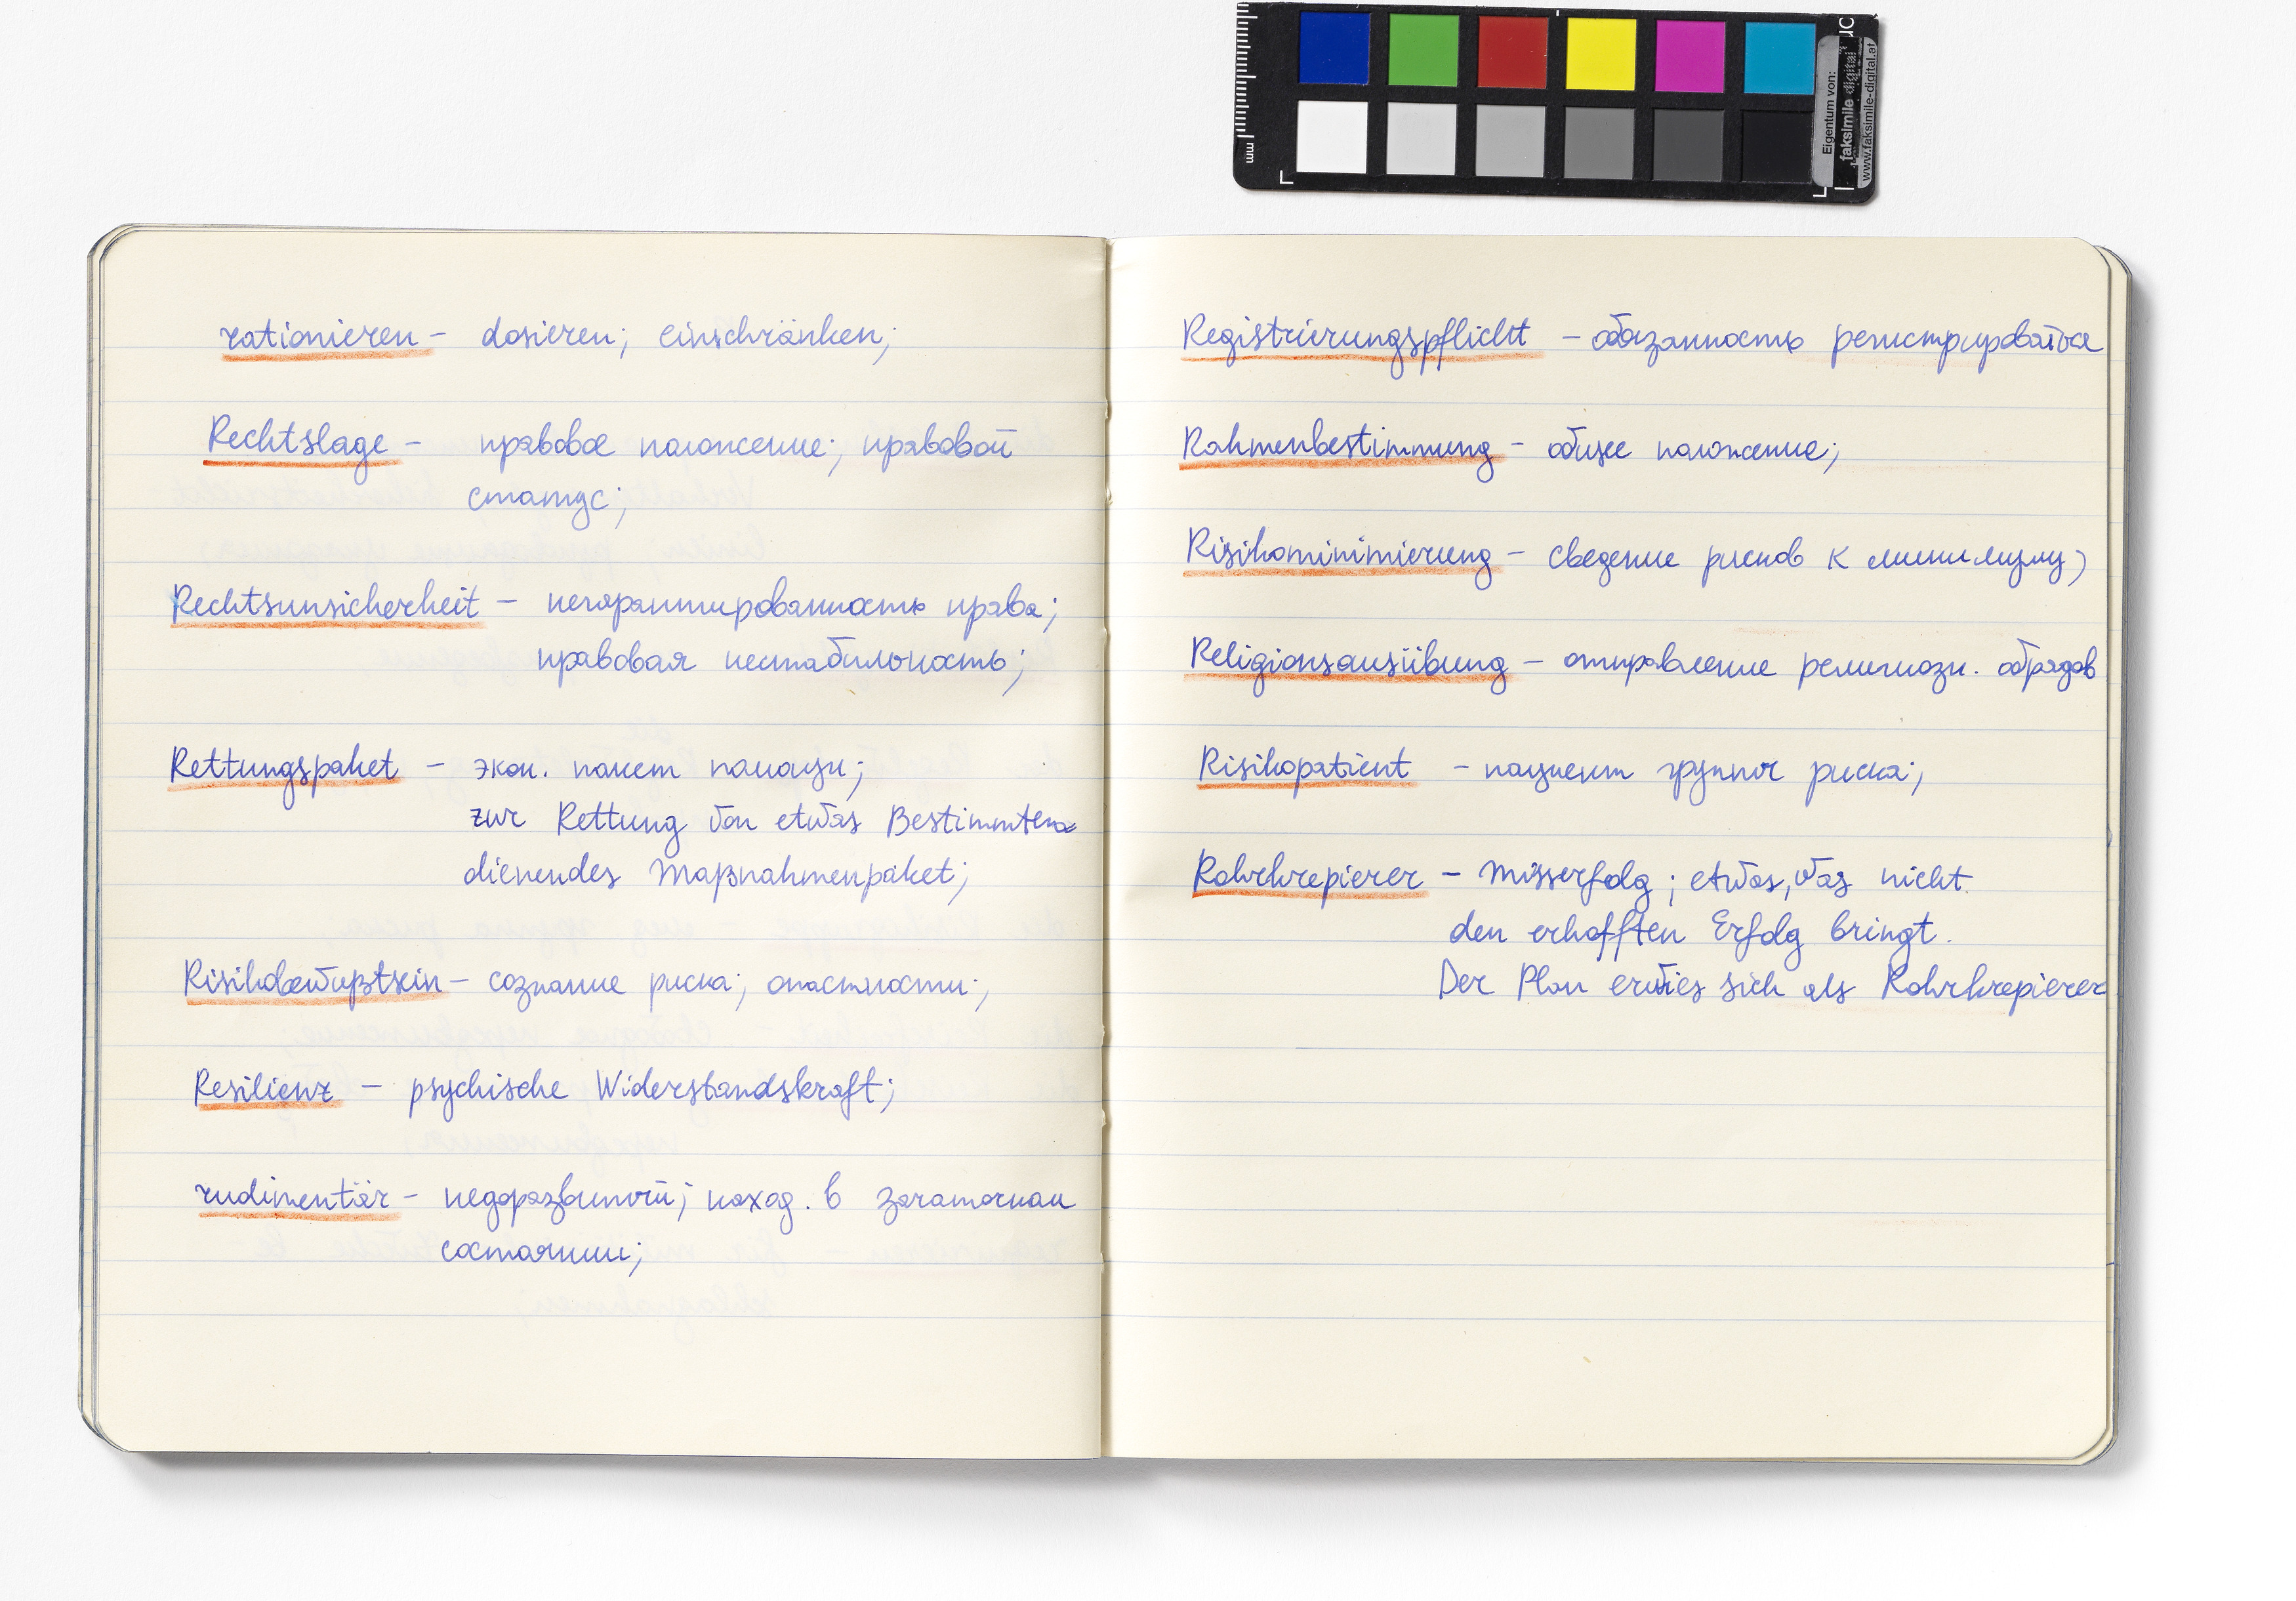 rationieren – dosieren; einschränken;
Rechtslage – правовое положение; правовой
статус;
Rechtsunsicherheit – негарантированность права;
правовая нестабильность;
Rettungspaket – экон. пакет помощи;
zur Rettung von etwas Bestimmtem
dienendes Maßnahmenpaket;
Risikobewußtsein – сознание риска; опастности;
Resilienz – psychische Widerstandskraft;
rudimentär – недоразвитый; наход. в зачаточном
состоянии;
Registrierungspflicht – обязанность регистрироваться
Rahmenbestimmung – общее положение;
Risikominimierung – сведение рисков к минимуму;
Religionsausübung – отправление религиозн. обрядов
Risikopatient – пациент группы риска;
Rohrkrepierer – Misserfolg; etwas, was nicht
den erhofften Erfolg bringt.
Der Plan erwies sich als Rohrkrepierer
mm
Eigentum von:
faksimile digital
www.faksimile-digital.at